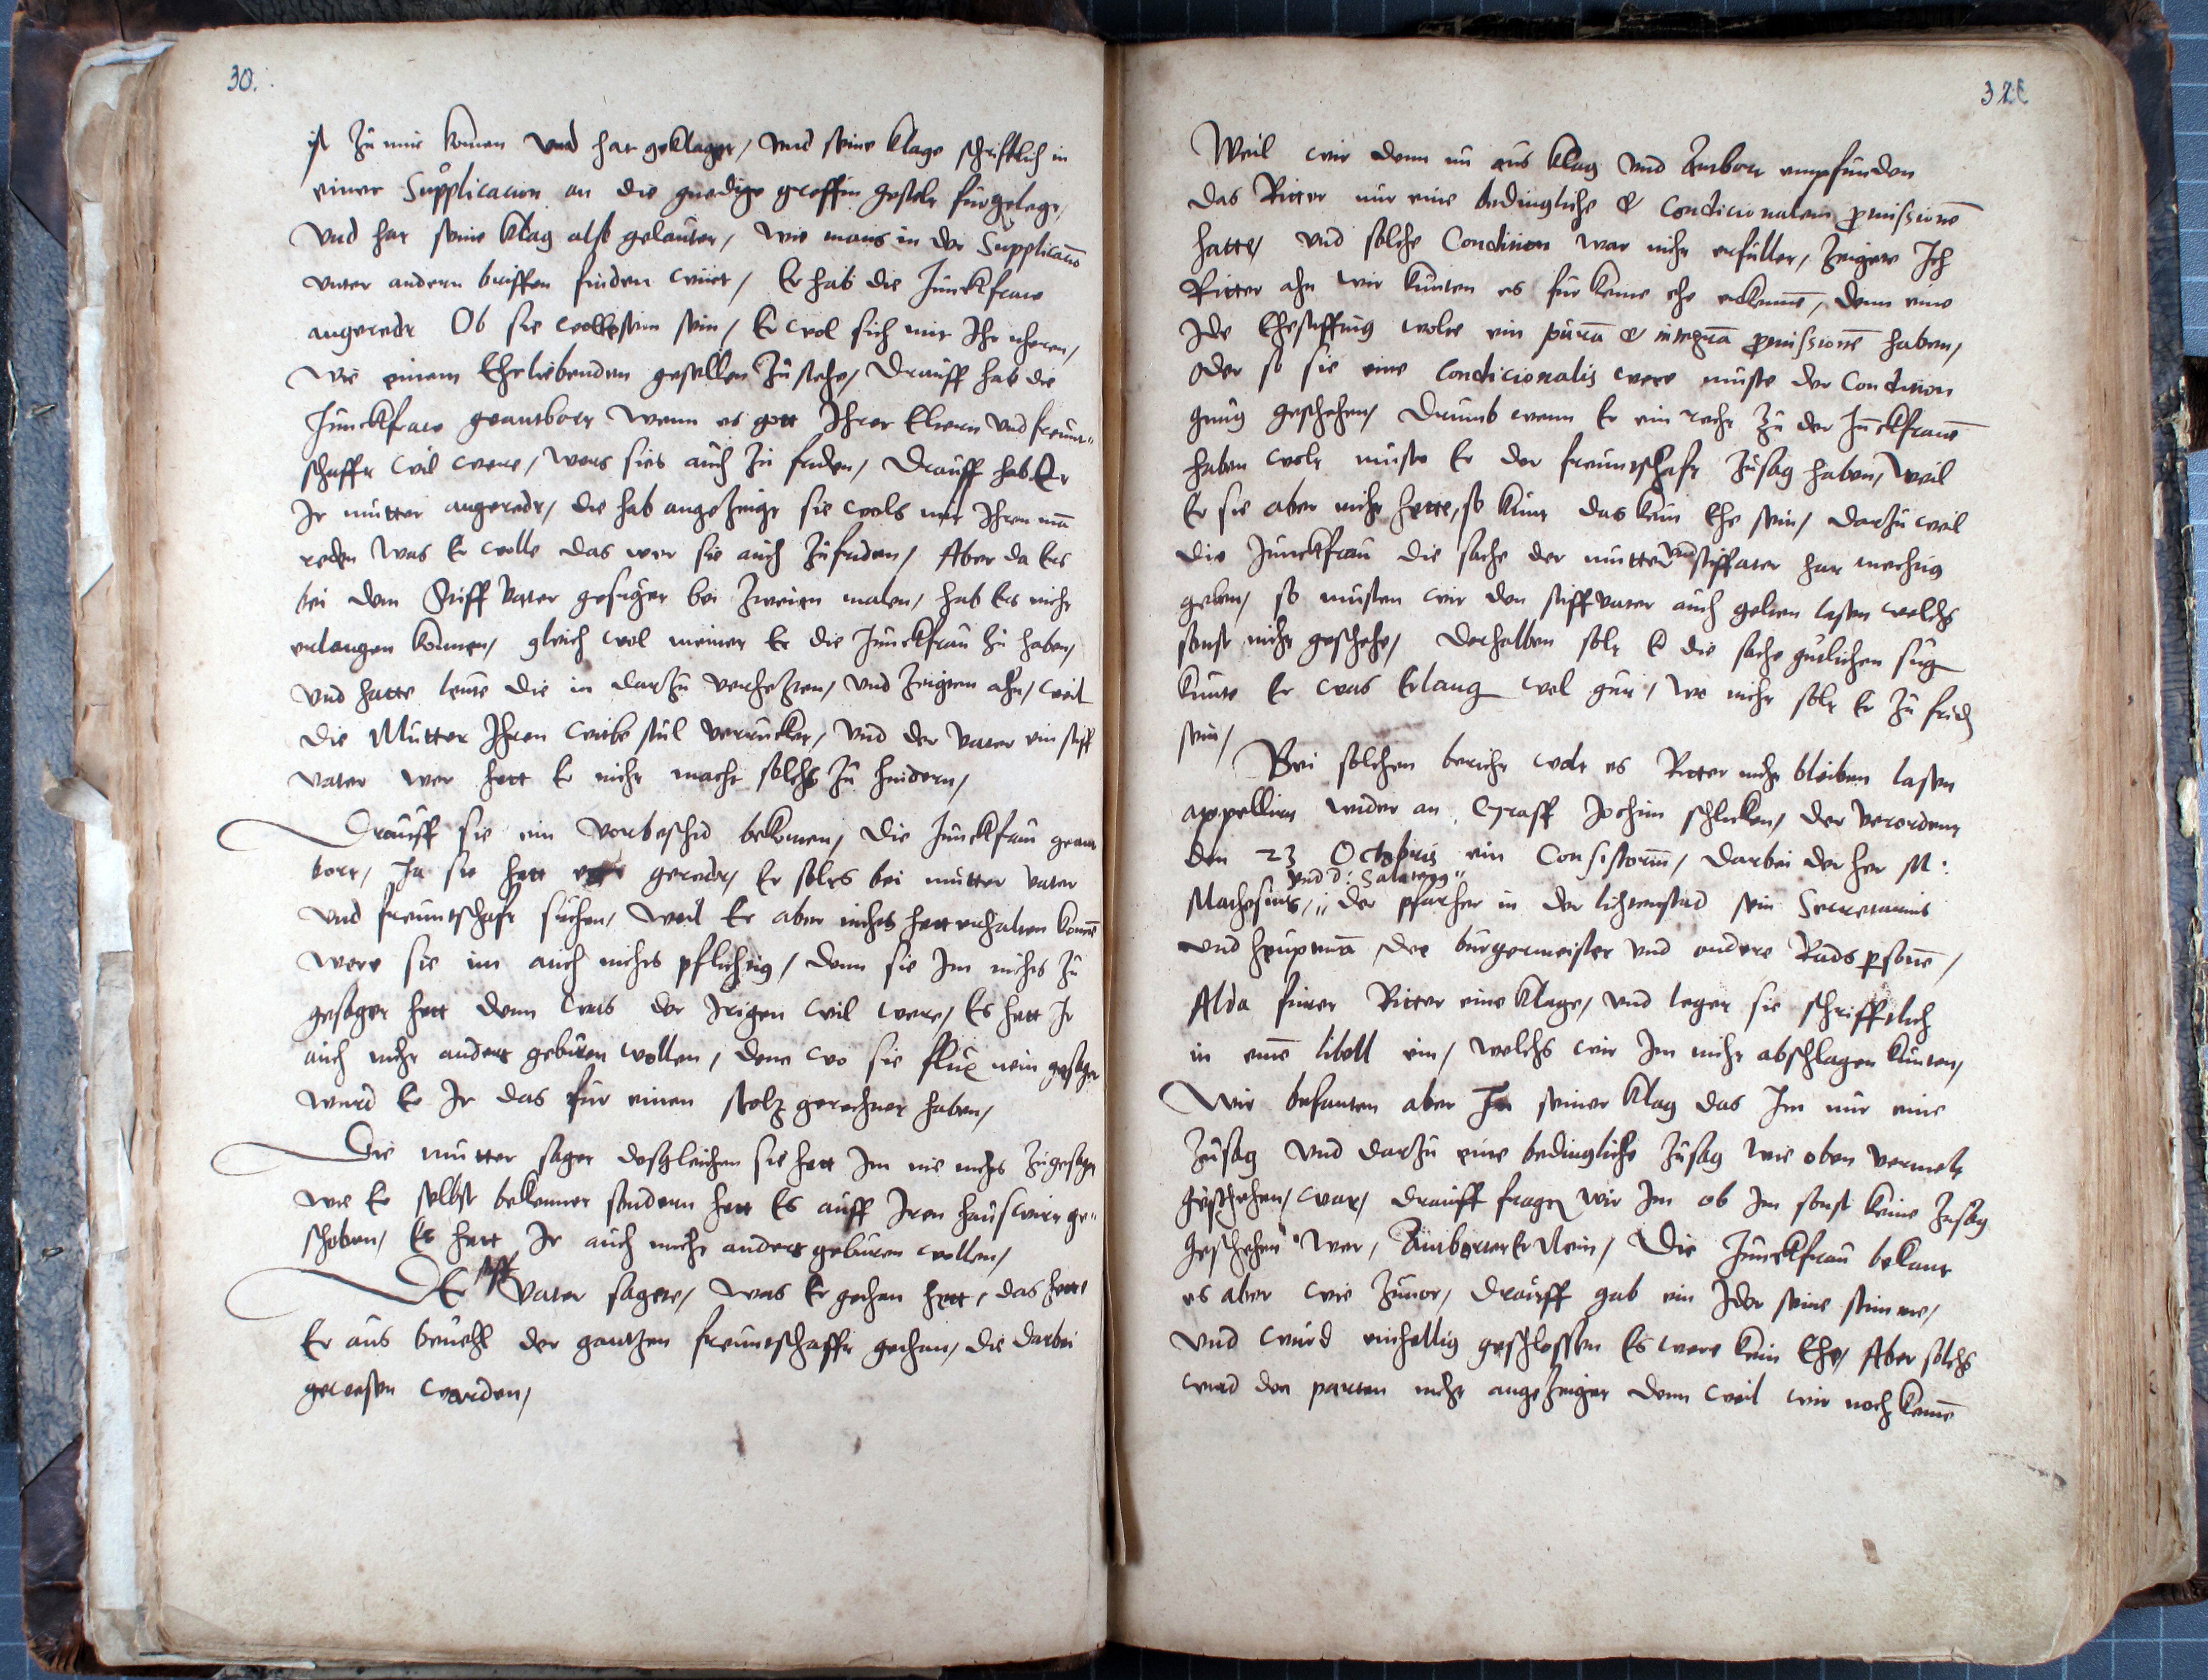 30.
ist zu mir komen vnd hat geklaget, vnd seine klage schrifftlich in
einer Supplicacion an die gnedige greffin gestelt furgelegt,
vnd hat seine klag also gelautet, wie mans in der Supplicatio
vnter andern briffen finden wirt, Er hab die Junckfraw
angeredt Ob sie wolle sein sein, Er wol sich mit Ihr nheren,
wie einem Ehrliebenden gesellen zustehe, Drauff hab die
Junckfraw geantbort wenn es gott Ihrer Eltern vnd freunt-
schafft wil were, wers sies auch zu friden, Drauff hab Er
Ir mutter angeredt, die hab angezeigt sie wols mit Ihrem mā
reden was Er wolle das wer sie auch zufriden, Aber da Ers
bei dem Stiff Vater gesucht bei zweien malen, hab Ers nicht
erlangen konnen, gleich wol meinet Er die Junckfrau zu haben,
vnd hatte leute die in darzu verhetzten, vnd zeigten ahn, weil
die Mutter Ihren witbe stul verrucket, vnd der vater ein stiff
vater wer hett Er nicht macht solchs zu hindern,
Drauff sie ein vorbeschid bekomen, die Junckfrau geant
bort, Ja sie hett geredt, Er solts bei mutter vater
vnd freuntschafft suchen, weil Er aber nichts hett erhalten konnē
were sie im auch nichts pflichtig, denn sie Im nichts zu
gesaget hett denn was der Irigen wil were, Es hett Ir
auch nicht anders geburen wollen, denn wo sie flux nein gesaget
wurd Er Ir das fur einen stolz gerechnet haben,
Die mutter saget desgleichen sie hett Im nie nichts zugesaget
wie Er selbst bekennet sondern hett Es auff Iren hauswirt ge-
schoben, Es hett Ir auch nicht anders geburen wollen,
Der stiff Vater sagete, was Er gethan hett, das hette
Er aus beuehl der gantzen freuntschafft gethan, die darbei
gewesen worden,
Weil wir denn nu aus klag vnd Antbort empfunden
das Ritter nur eine bedingliche & condicionalem promissionē
hatte, vnd solche Condition war nicht erfullet, zeigete Ich
Ritter ahn wir kunten es fur keine ehe erkennē, denn eine
Ide Ehestifftung wolte ein purā & integrā promissionē haben,
oder so sie eine condicionalis were muste der Condition
gnug geschehen, Drumb wenn Er ein recht zu der Junckfrawē
haben wolt muste Er der freuntschafft zusag haben, weil
Er sie aber nicht hette, so kunt das kein Ehe sein, darzu weil
die Junckfrau die sache der mutter vnd stiffvater hat mechtig
geben, so musten wir den stiffvater auch gelten lassen welchs
sonst nicht geschehe, derhalben solt Er die sache gutlichen sug
kunte Er was Erlang wol gut, wo nicht solt Er zu fridē
sein,
Bei solchen bericht wolt es Ritter nicht bleiben lassen
appellirt wider an Graff Jochim schlicken, der verordent
den 23 Octobris ein Consistorium, darbei der her M:
vnd d:
Mathesius, der pfarher in der lichtenstad sein Secretarius
vnd heuptmā die burgermeister vnd andere Rads personē,
Alda furet Ritter eine klage, vnd leget sie schrifftlich
in eine libell ein, welchs wir Im nicht abschlagen kunten,
Wir befanten aber In seiner klag das Im nur eine
zusag vnd darzu eine bedingliche zusag wie oben vermelt
geschehen, war, drauff fragtē wir Im ob Im sonst keine zusag
geschehen wer, Antbortet Er Nein, Die Junckfrau bekant
es aber wie zuuor, drauff gab ein Ider seine stimme,
vnd wurd einhellig geschlossen Es were kein Ehe, Aber solchs
ward den parten nicht angezeiget denn weil wir noch keine